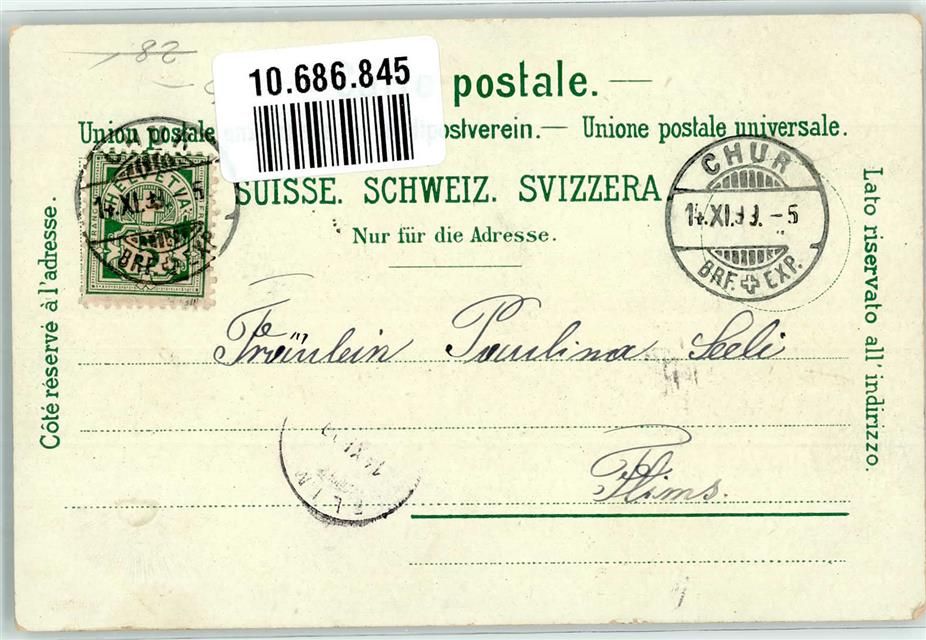 82
10.686.845
postale. —
Union postale ostverein. — Unione postale universale.
SUISSE. SCHWEIZ. SVIZZERA
Nur für die Adresse.
Côté réservé à l'adresse.
Lato riservato all' indirizzo.
HELVETIA
14.XI.99. 5
BRF. EXP.
CHUR
14.XI.99. - 5
BRF. EXP.
Fräulein Paulina Seeli
Flims.
14 XI